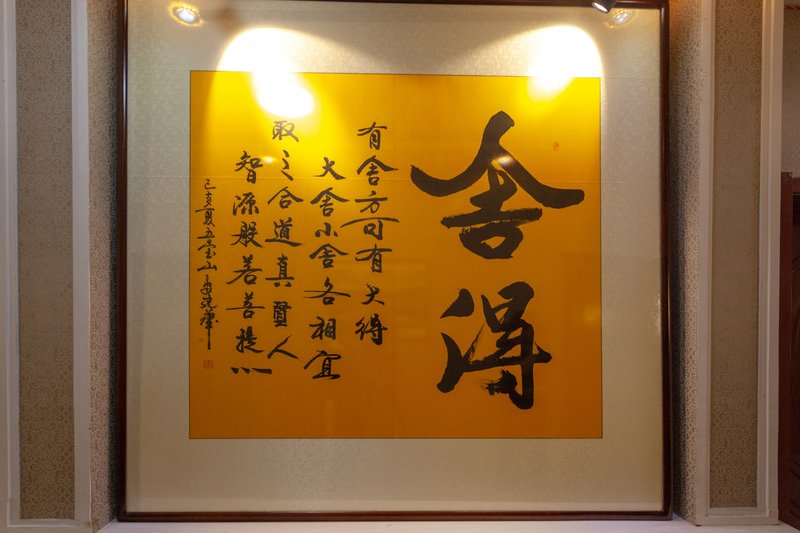 舍得
有舍方可有大得
大舍小舍各相宜
取之合道真聖人
智源般若菩提心
己亥夏五台山